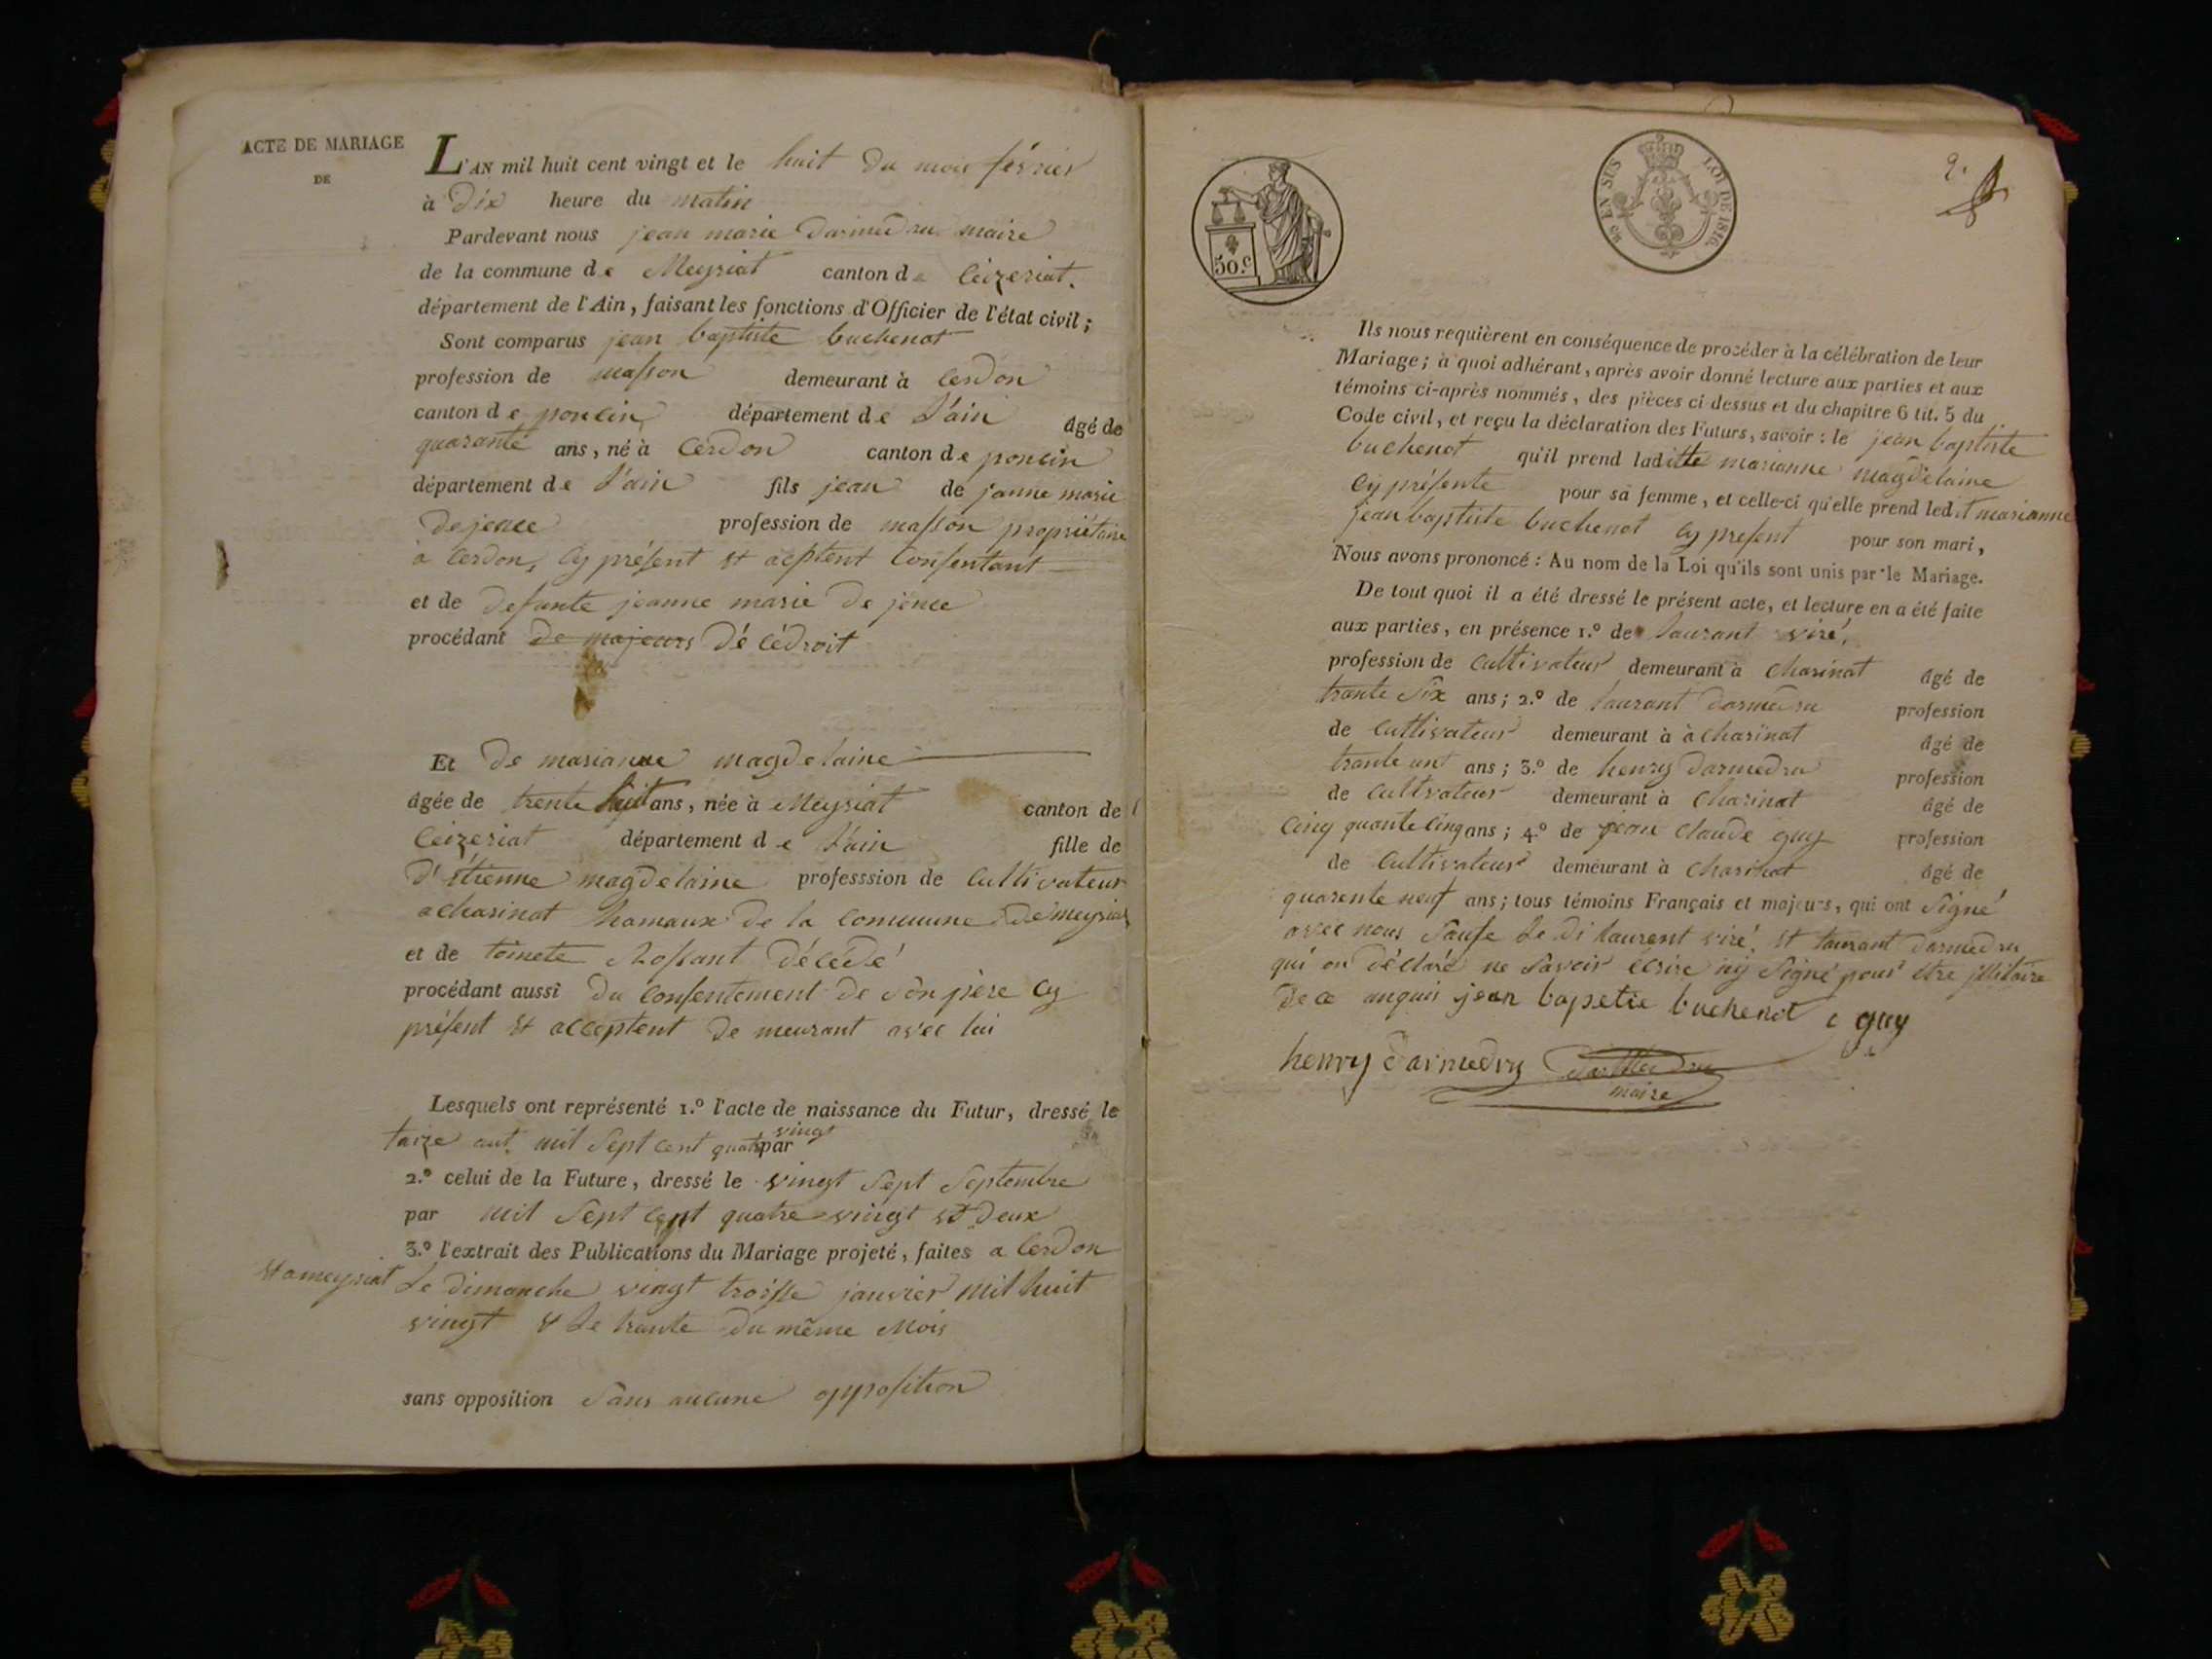 ACTE DE MARIAGE
DE
L'AN mil huit cent vingt et le huit du mois février
à dix heure du matin
Pardevant nous jean marie darmedru maire
de la commune de Meyriat canton de Ceizeriat.
département de l'Ain, faisant les fonctions d'Officier de l'état civil;
Sont comparus jean baptiste buchenot
profession de masson demeurant à Cerdon
canton de poncin département de l'ain âgé de
quarante ans, né à Cerdon canton de poncin
département de l'ain fils jean de janne marie
dejence profession de masson propriétaire
à Cerdon, cy présent et aceptent Consentant
et de defunte jeanne marie de jence
procédant de majeurs dé cédroit
Et de marianne magdelaine
âgée de trente huit ans, née à Meyriat canton de
Ceizeriat département de l'ain fille de
d'étienne magdelaine professsion de Cultivateur
a charinat hamaux de la commune de meyriat
et de toinete décédé
procédant aussi du consentement de son père cy
présent et acceptent de meurant avec lui
Lesquels ont représenté 1.º l'acte de naissance du Futur, dressé le
taize aut. mil sept cent quatre vingt
par
2.º celui de la Future, dressé le vingt sept septembre
par mil sept cent quatre vingt et deux
3.º l'extrait des Publications du Mariage projeté, faites a Cerdon
et a meyriat le dimanche vingt troisse janvier mil huit
vingt et le trante du même Mois
sans opposition sans aucune opposition
50.c
25 EN SUS
LOI DE 1816.
2.
Ils nous requièrent en conséquence de procéder à la célébration de leur
Mariage; à quoi adhérant, après avoir donné lecture aux parties et aux
témoins ci-après nommés, des pièces ci dessus et du chapitre 6 tit. 5 du
Code civil, et reçu la déclaration des Futurs, savoir: le jean baptiste
buchenot qu'il prend laditte marianne magdelaine
cy présente pour sa femme, et celle-ci qu'elle prend ledit marianne
jean baptiste buchenot cy present pour son mari,
Nous avons prononcé: Au nom de la Loi qu'ils sont unis par le Mariage.
De tout quoi il a été dressé le présent acte, et lecture en a été faite
aux parties, en présence 1.º de laurant viré,
profession de cultivateur demeurant à charinat âgé de
trante six ans; 2.º de laurant darmedru profession
de cultivateur demeurant à à charinat âgé de
trante unt ans; 3.º de henry darmedru profession
de cultivateur demeurant à charinat âgé de
cinq quante cinq ans; 4.º de jean claude guy profession
de Cultivateur demeurant à charinat âgé de
quarente neuf ans; tous témoins Français et majeurs, qui ont signé
avec nous saufe le di laurent viré. et laurant darmedru
qui on déclaré ne savoir écrire ny signé pour être
de ce anquis jean bapetie buchenot c guy
henry darmedry darmedru
maire